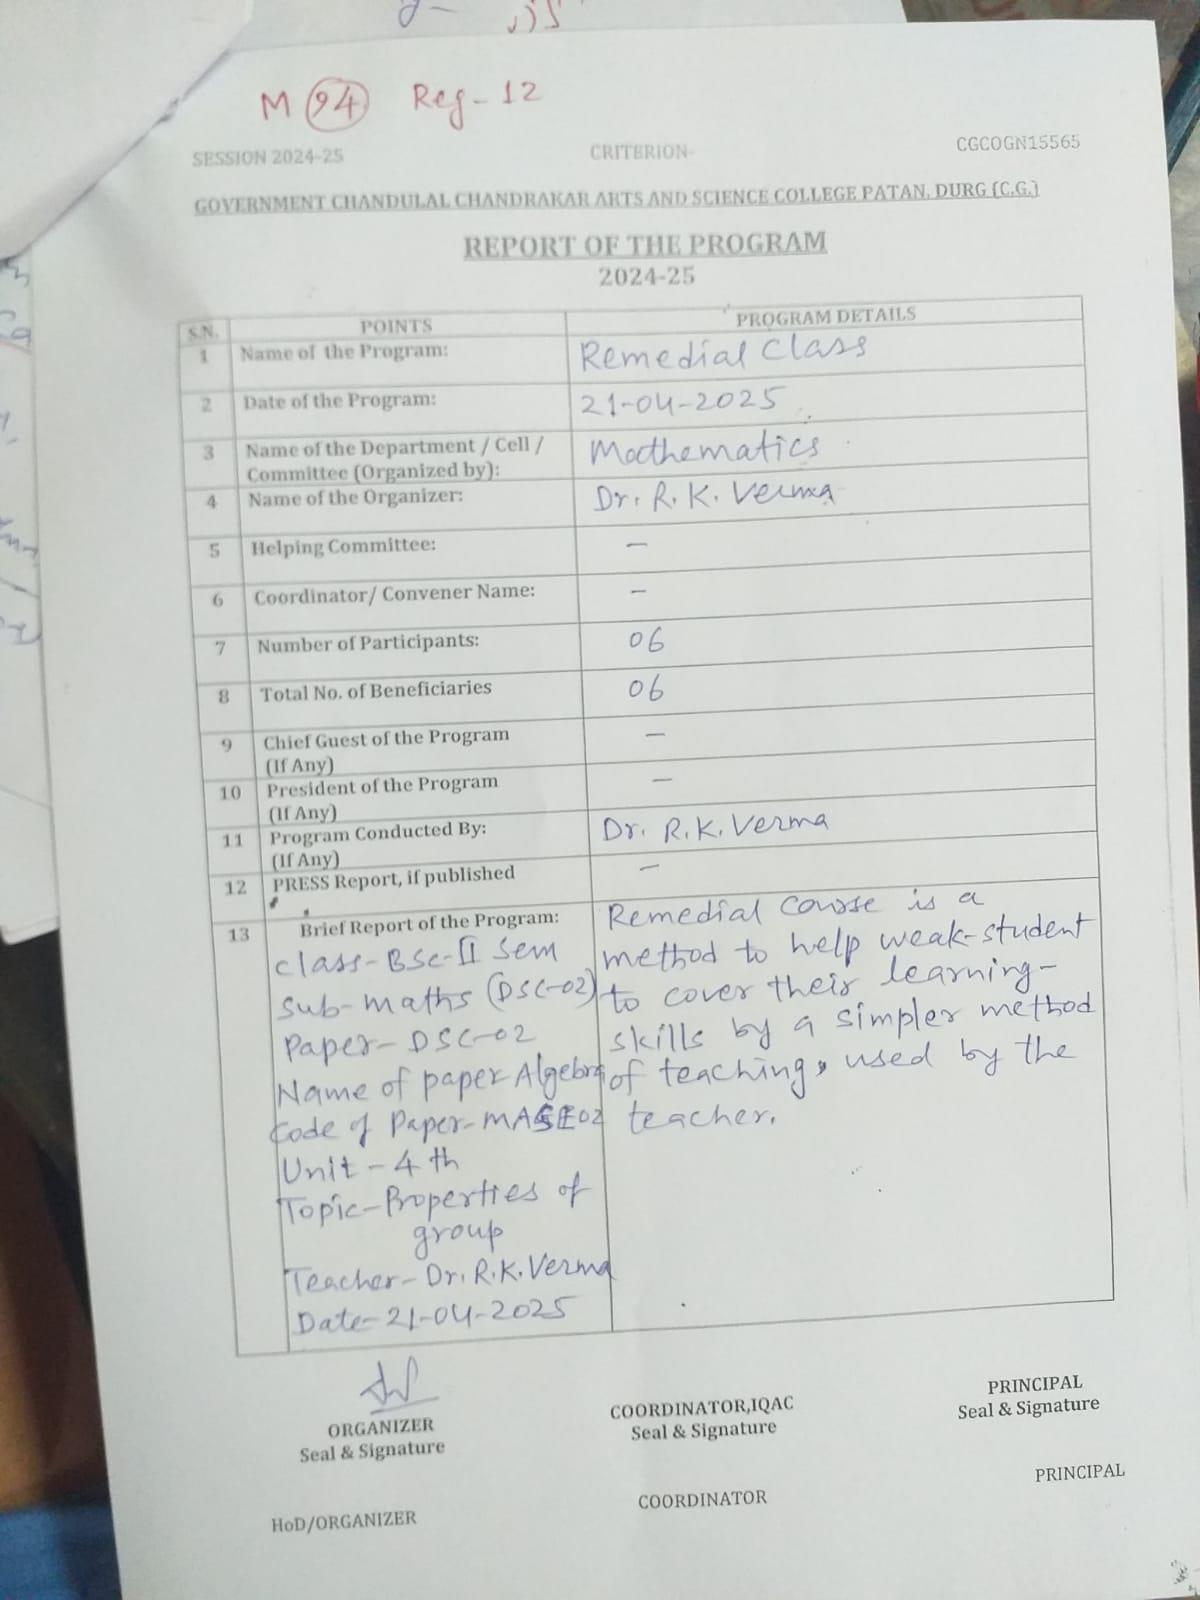 M 94 Reg-12
SESSION 2024-25 CRITERION- CGCOGN15565
GOVERNMENT CHANDULAL CHANDRAKAR ARTS AND SCIENCE COLLEGE PATAN, DURG (C.G.)
REPORT OF THE PROGRAM
2024-25
S.N. POINTS PROGRAM DETAILS
1 Name of the Program: Remedial Class
2 Date of the Program: 21-04-2025
3 Name of the Department / Cell / Mathematics
Committee (Organized by):
4 Name of the Organizer: Dr. R. K. Verma
5 Helping Committee: —
6 Coordinator/ Convener Name: —
7 Number of Participants: 06
8 Total No. of Beneficiaries 06
9 Chief Guest of the Program —
(If Any)
10 President of the Program —
(If Any)
11 Program Conducted By: Dr. R.K. Verma
(If Any)
12 PRESS Report, if published —
13 Brief Report of the Program:
Class-BSc-II Sem
Sub-maths (DSC-02)
Paper-DSC-02
Name of paper Algebra
Code of Paper-
Unit-4th
Topic-Properties of
group
Teacher-Dr. R.K. Verma
Date-21-04-2025
Remedial course is a
method to help weak-student
to cover their learning-
skills by a simpler method
of teaching, used by the
teacher.
ORGANIZER COORDINATOR,IQAC PRINCIPAL
Seal & Signature Seal & Signature Seal & Signature
HoD/ORGANIZER COORDINATOR PRINCIPAL